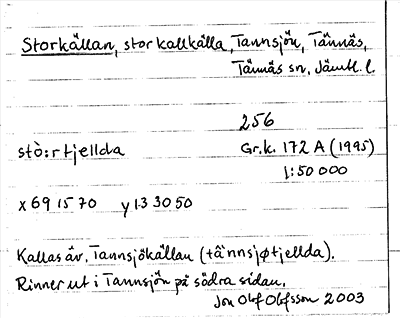 Storkällan, stor kallkälla, Tannsjön, Tännäs,
Tännäs sn, Jämtl. l.
256
stò:rtjellda Gr.k. 172 A (1995)
1:50 000
x 69 15 70 y 13 30 50
Kallas äv. Tannsjökällan (tânnsjøtjellda).
Rinner ut i Tannsjön på södra sidan.
Jon Olof Olofsson 2003